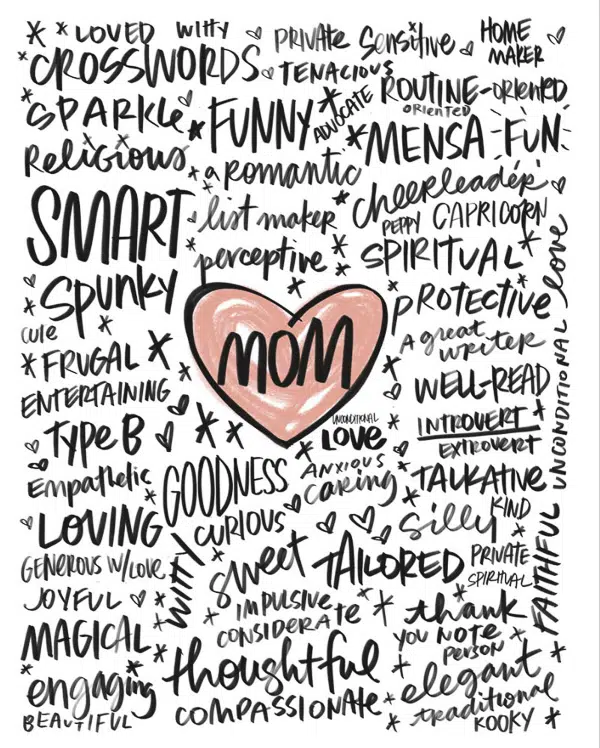 LOVED WITTY PRIVATE Sensitive HOME MAKER
CROSSWORDS TENACIOUS
SPARKLE FUNNY ADVOCATE ROUTINE-ORIENTED
ORIENTED
Religious MENSA FUN
a Romantic
SMART list maker cheerleader
PEPPY CAPRICORN
perceptive SPIRITUAL
Spunky PROTECTIVE
CUTE MOM A great writer
FRUGAL
ENTERTAINING WELL-READ
UNCONDITIONAL love
Type B UNCONDITIONAL LOVE INTROVERT
EXTROVERT
Empathetic GOODNESS ANXIOUS
caring TALKATIVE
LOVING CURIOUS silly KIND
GENEROUS W/LOVE WITTY sweet TAILORED PRIVATE
SPIRITUAL
FAITHFUL
JOYFUL IMPULSIVE thank
YOU NOTE
PERSON
MAGICAL CONSIDERATE
thoughtful elegant
engaging COMPASSIONATE traditional
BEAUTIFUL KOOKY